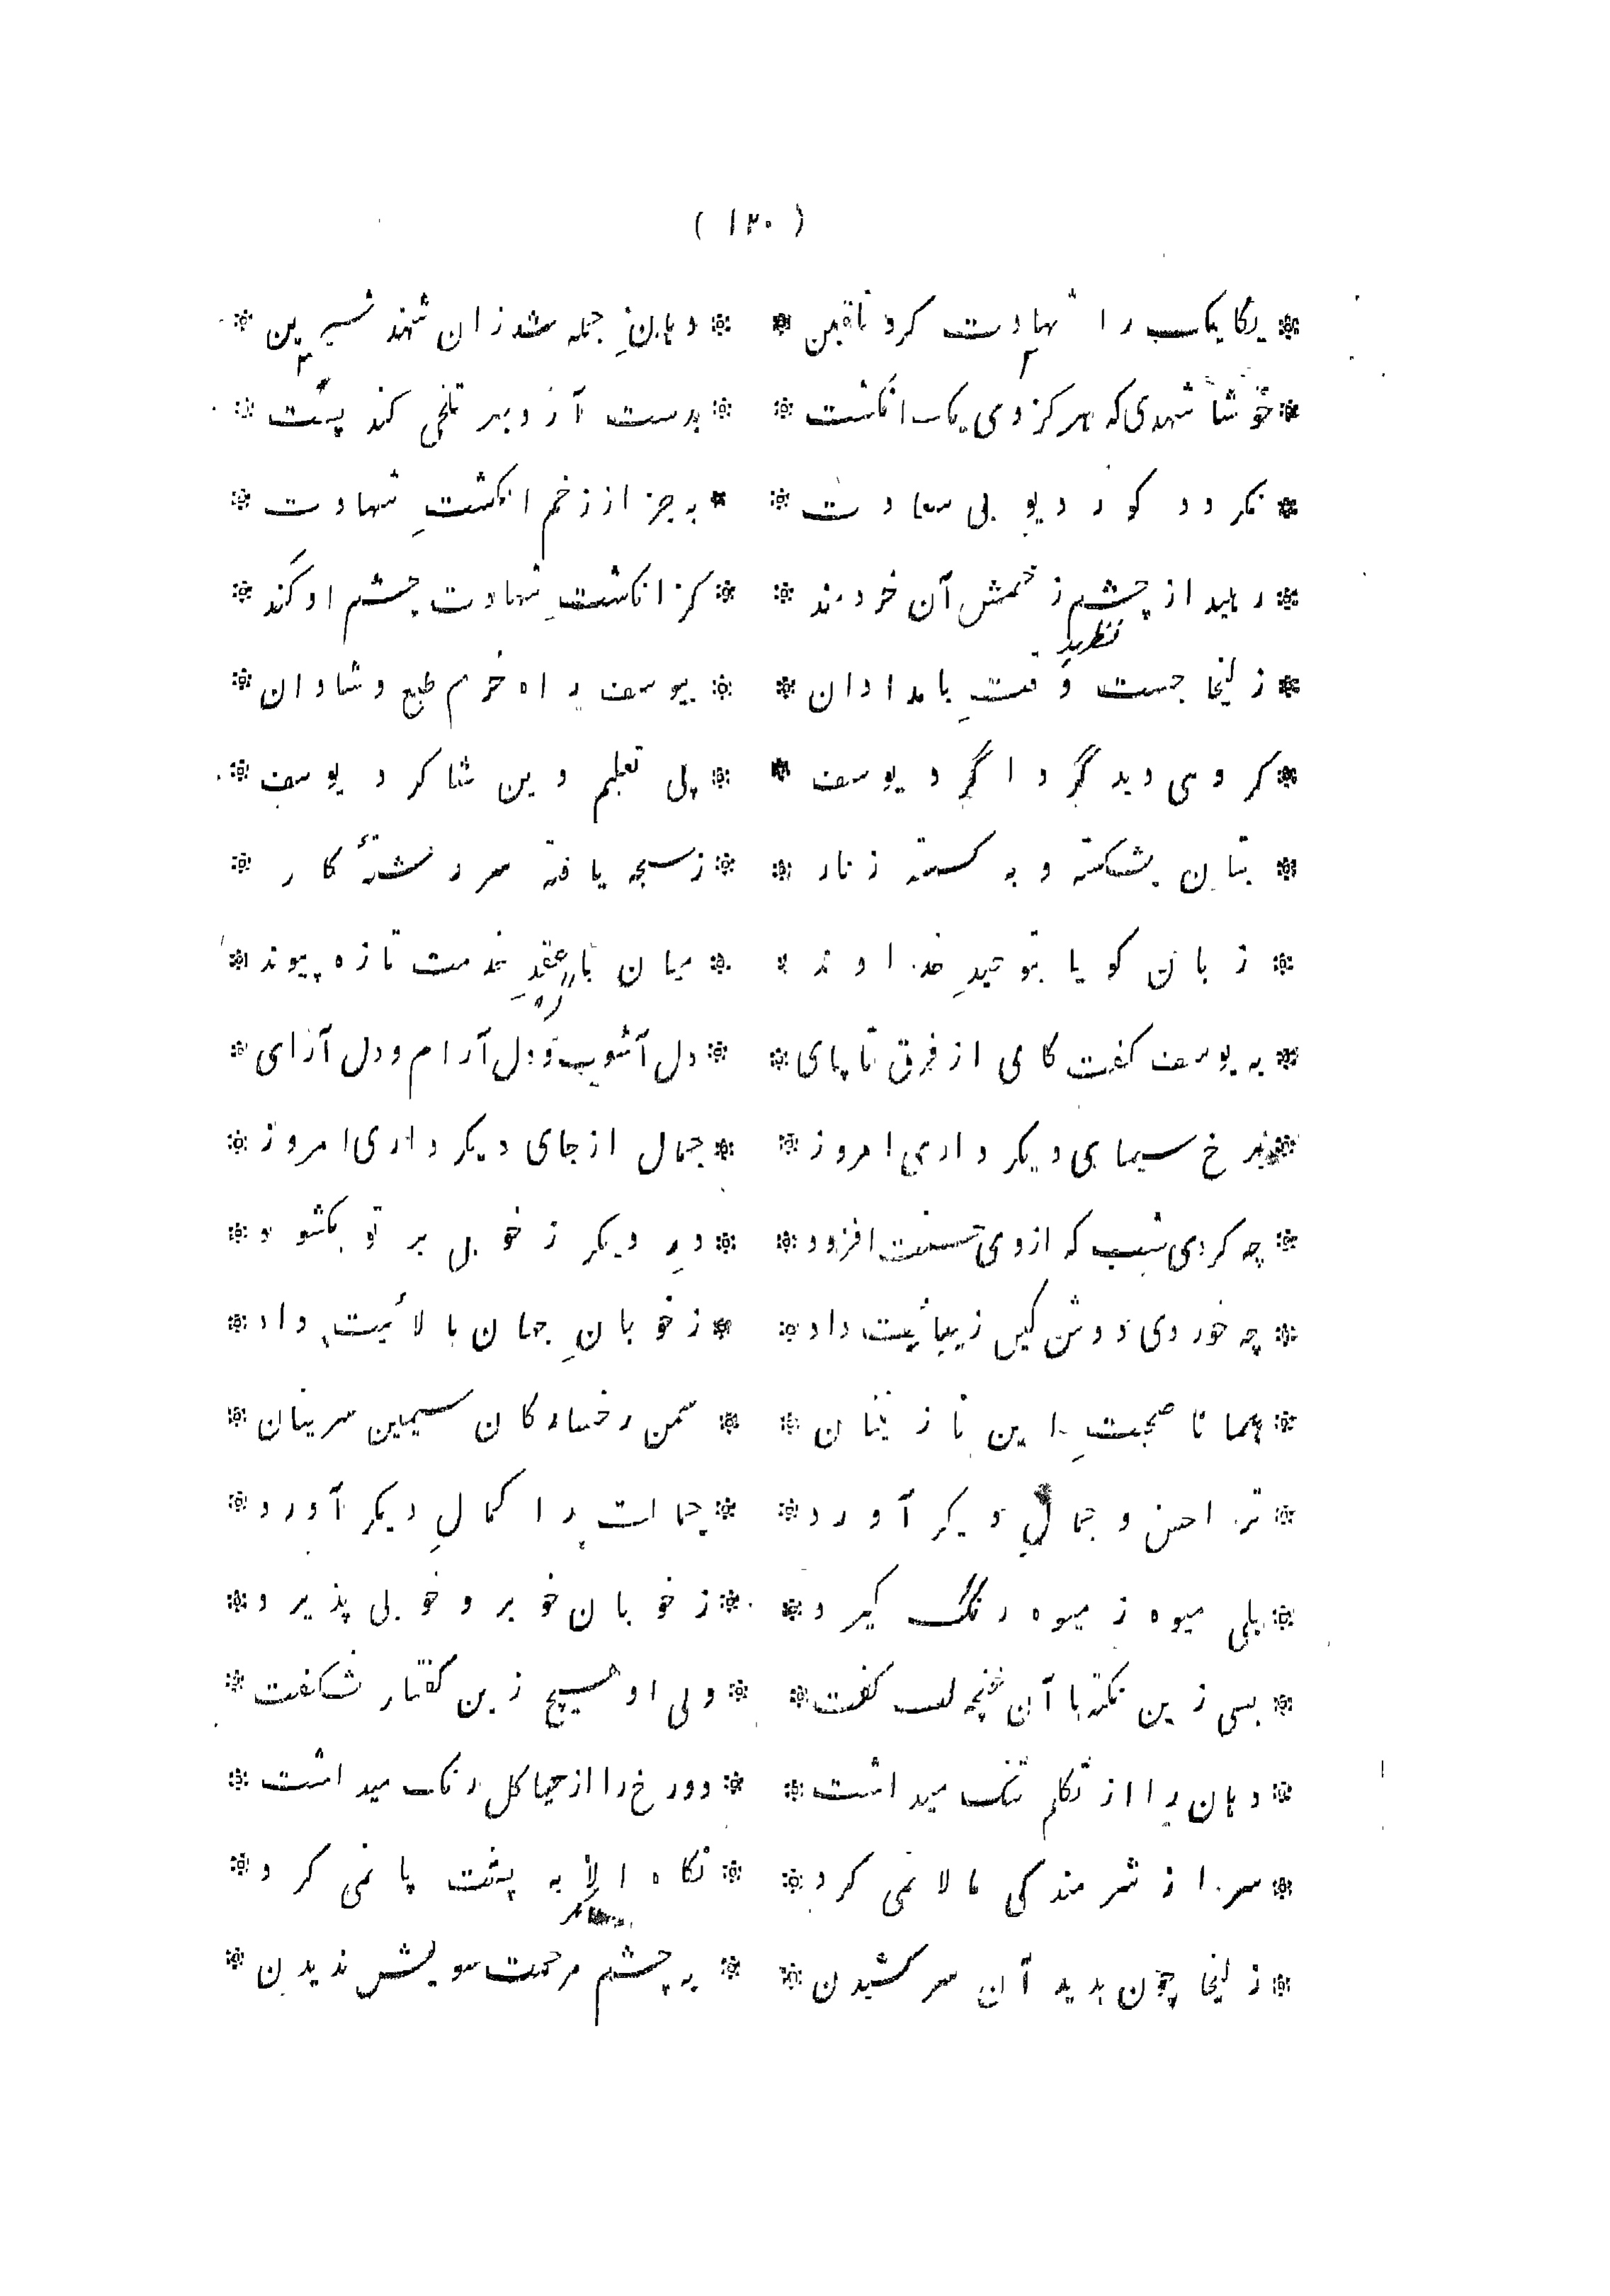 ( ۱۲۰ )
یکایک را شهادت کرد تلقین * دهانِ جمله شد زان شهد شیرین
خوشا شهدی که هر کز وی یک انکشت * بدست آرد بهر تلخی کند پشت
نکردد کور دیو بی سعادت * به جز از زخم انکشتِ شهادت
رهید از چشم زخمش آن خردمند * کز انکشتِ شهادت چشم او کند
زلیخا جست وقتِ بامدادان * بیوسف راه خرم طبع و شادان
نظر
کروهی دید گرداگرد یوسف * پی تعلیم دین شاکرد یوسف
بتان بشکسته و به کسسته زنار * ز سبحه یافته سر رشتهٔ کار
زبان کویا بتوحیدِ خداوند * میان با عقدِ خدمت تازه پیوند
به یوسف کفت کای از فرق تا پای * دل آشوب و دل آرام و دل آرای
برخ سیمای دیکر داری امروز * جمال از جای دیکر داری امروز
چه کردی شب که از وی حسنت افزود * درِ دیکر ز خوبی بر تو بکشود
چه خوردی دوش کین زیبائیت داد * ز خوبانِ جهان بالائیت داد
همانا صحبتِ این نازنینان * سمن رخسارکان سیمین سرینان
ترا حسن و جمالِ دیکر آورد * جمالت را کمالِ دیکر آورد
بلی میوه ز میوه رنگ کیرد * ز خوبان خوبرو خوبی پذیرد
بسی زین نکته با آن غنچه لب کفت * ولی او هیچ زین کفتار نشکفت
دهان را از تکلم تنک میداشت * دو رخ را از حیا کل رنک میداشت
سر از شرمندکی بالا نمی کرد * نکاه الا به پشت پا نمی کرد
زلیخا چون بدید آن سر کشیدن * به چشم مرحمت سویش ندیدن